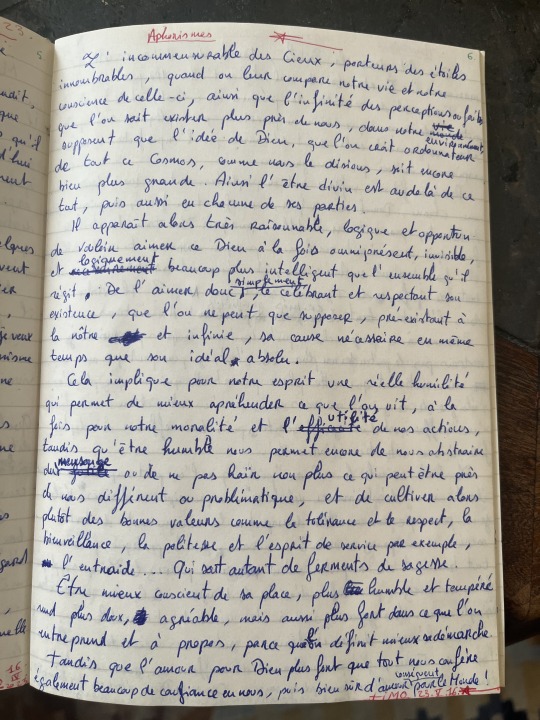 Aphorismes
6.
L'incommensurable des Cieux, porteurs des étoiles
innombrables, quand on leur compare notre vie et notre
conscience de celle-ci, ainsi que l'infinité des perceptions ou faits
que l'on sait exister plus près de nous, dans notre environnement,
supposent que l'idée de Dieu, que l'on croit ordonnateur
de tout ce Cosmos, comme nous le disions, soit encore
bien plus grande. Ainsi l'être divin est au delà de ce
tout, puis aussi en chacune de ses parties.
Il apparaît alors très raisonnable, logique et opportun
de vouloir aimer ce Dieu à la fois omniprésent, invisible,
et logiquement beaucoup plus intelligent que l'ensemble qu'il
régit. De l'aimer donc simplement, le célébrant et respectant son
existence, que l'on ne peut que supposer, pré-existant à
la nôtre et infinie, sa cause nécessaire en même
temps que son idéal absolu.
Cela implique pour notre esprit une réelle humilité
qui permet de mieux apréhender ce que l'on vit, à la
fois pour notre moralité et l'utilité de nos actions,
tandis qu'être humble nous permet encore de nous abstraire
du mensonge ou de ne pas haïr non plus ce qui peut être près
de nous différent ou problématique, et de cultiver alors
plutôt des bonnes valeurs comme la tolérance et le respect, la
bienveillance, la politesse et l'esprit de service par exemple,
l'entraide... Qui sont autant de ferments de sagesse.
Être mieux conscient de sa place, plus humble et tempéré
rend plus doux, agréable, mais aussi plus fort dans ce que l'on
entreprend et à propos, parce qu'on définit mieux sa démarche.
Tandis que l'amour pour Dieu plus fort que tout nous confère
également beaucoup de confiance en nous, puis bien sûr d'amour conséquent par le Monde !
TIMO 23.V.16